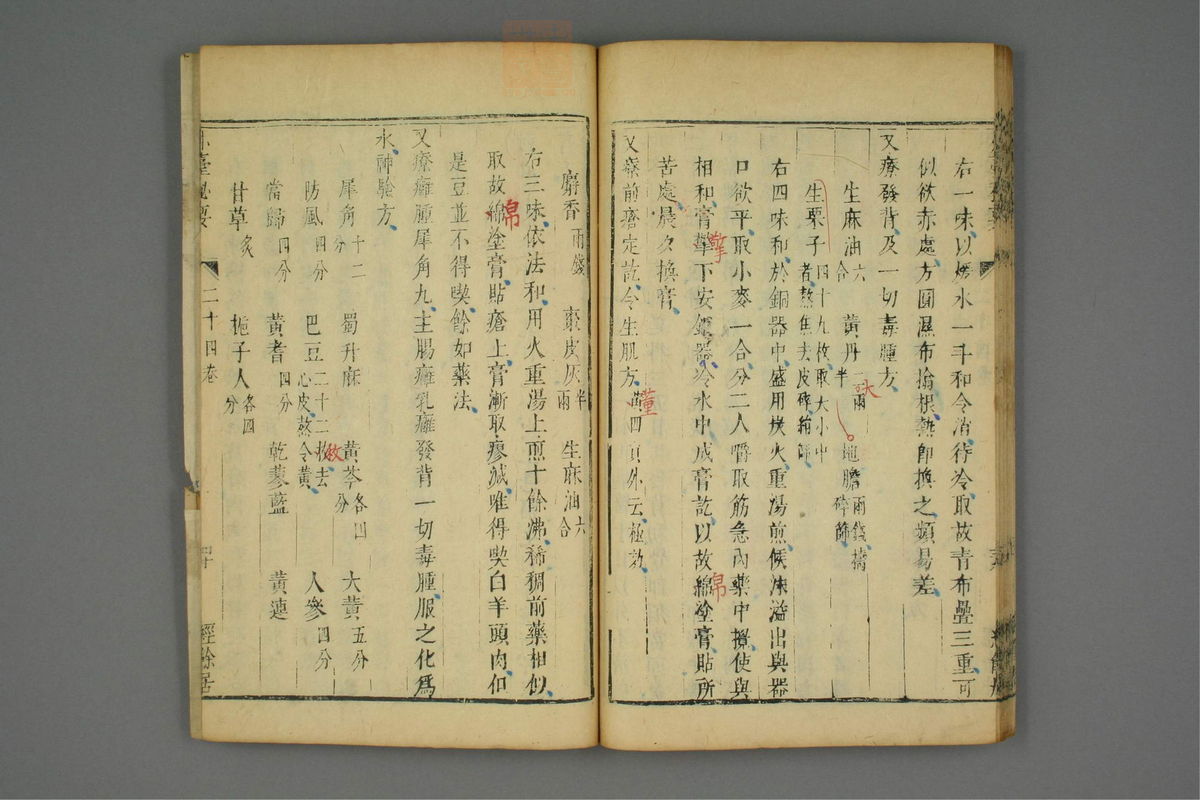 右一味以煖水一斗和令消待冷取故青布疊三重可
似欲赤處方圓濕布搨根熱即換之頻易差
又療發背及一切毒腫方
生麻油六合 黃丹二兩半 地膽兩錢擣碎篩
生栗子四十九枚取大小中者熬焦去皮碎絹篩
右四味和於銅器中盛用炭火重湯煎候沫溢出與器
口欲平取小麥一合分二人嚼取筋急內藥中攪使與
相和膏擎下安銀器冷水中成膏訖以故綿塗膏貼所
苦處晨夕換膏
又療前瘡定訖令生肌方黃四頁外云極効
麝香兩錢 棗皮灰半兩 生麻油六合
右三味依法和用火重湯上煎十餘沸稀稠前藥相似
取故綿塗膏貼瘡上膏漸取瘳減唯得喫白羊頭肉仍
是豆並不得喫餘如藥法
又療癰腫犀角丸主腸癰乳癰發背一切毒腫服之化為
水神驗方
犀角十二分 蜀升麻 黃芩各四分 大黃五分
防風四分 巴豆二十二枚去心皮熬令黃 人參四分
當歸四分 黃耆四分 乾蓼藍 黃連
甘草炙 梔子人各四分
外臺秘要 二十四卷 四十 經餘居
綿
擎
大
董
綿
枚